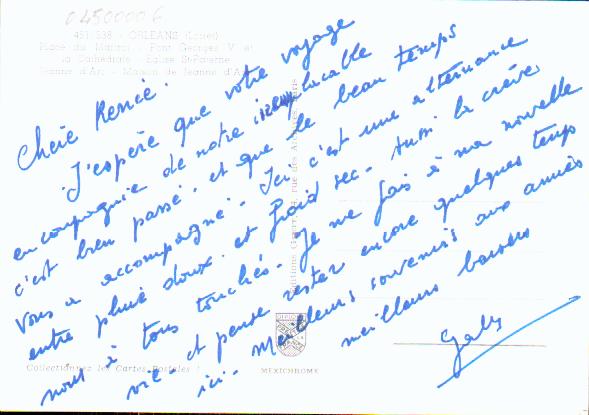 04500006
451 338 - ORLEANS (Loiret)
Place du Martroi - Pont Georges V et
la Cathédrale - Eglise St-Paterne
Jeanne d'Arc - Maison de Jeanne d'Arc
Chère Renée.
J'espère que votre voyage
en compagnie de notre inénarrable
c'est bien passé. et que le beau temps
vous a accompagné. Ici c'est une alternance
entre pluie doux et froid sec. Aussi la crève
nous à tous touchés. Je me fais à ma nouvelle
vie et pense rester encore quelques temps
ici. Meilleurs souvenirs aux amies
meilleurs baisers
Gaby
Collectionnez les Cartes Postales !
MEXICHROME